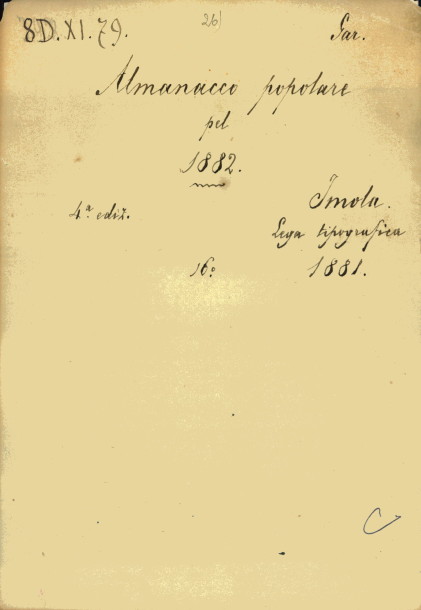 8D.XI.79.
26)
Gar.
Almanacco popolare
pel
1882.
4.ª ediz.
Imola.
Lega tipografica
16.º
1881.
C